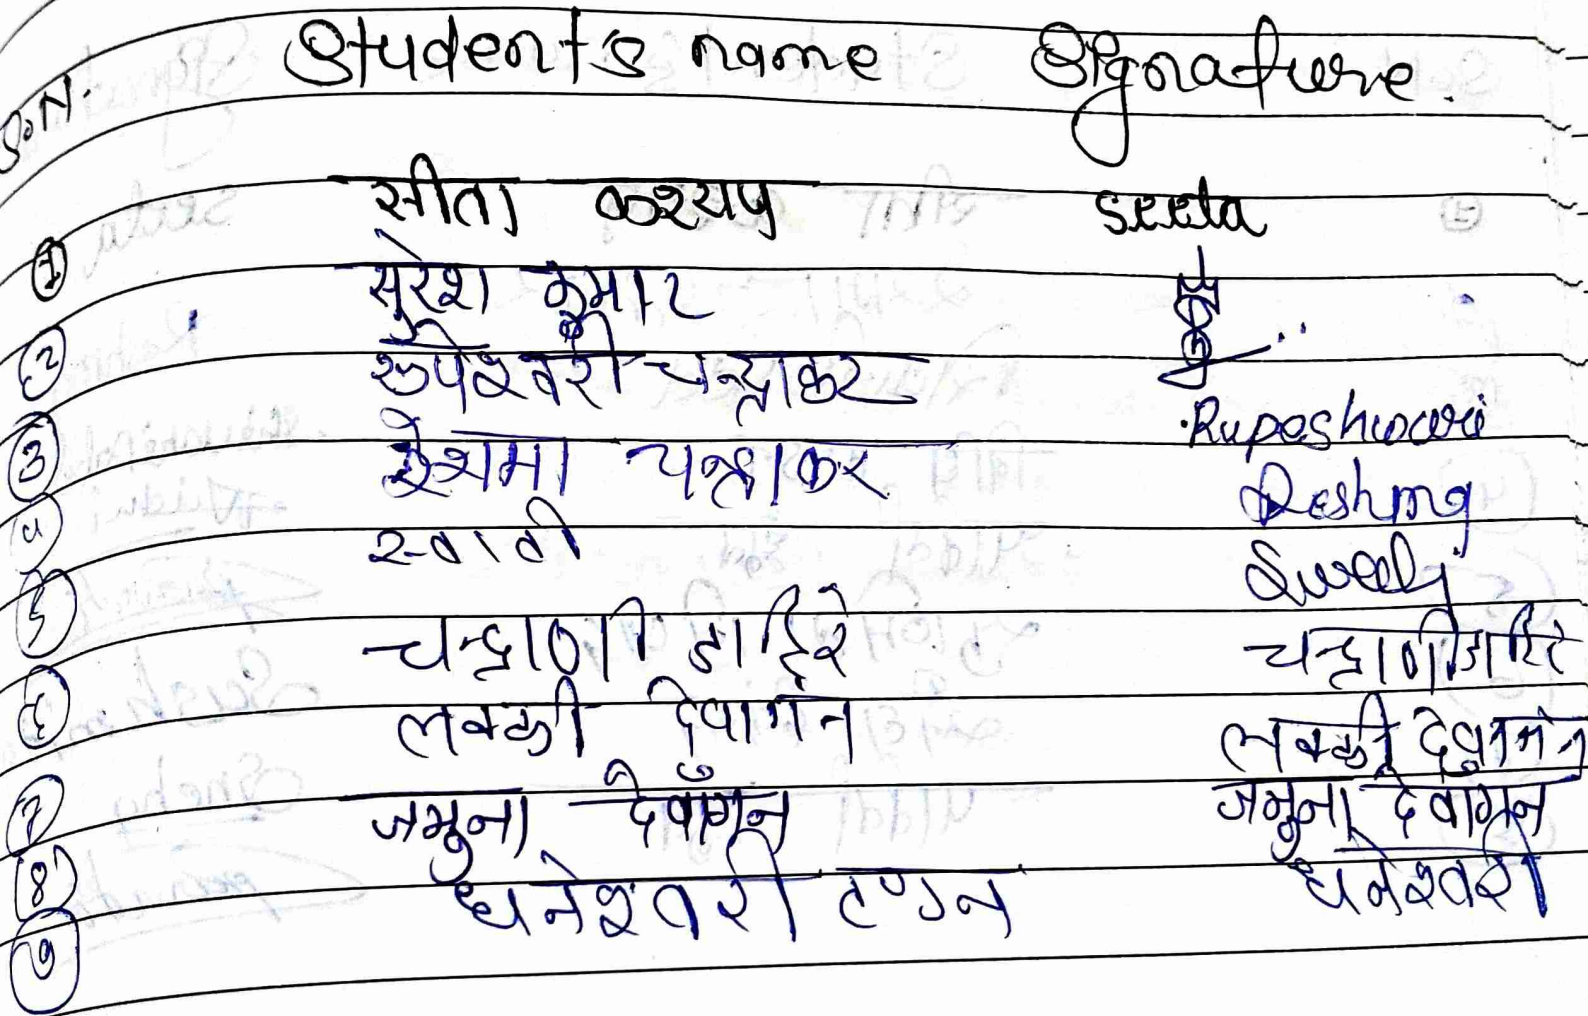 S.N. Student's name Signature.
1 सीता कश्यप seeta
2 सुरेश कुमार
3 रूपेश्वरी चन्द्राकर Rupeshwari
4 रेशमा चन्द्राकर Reshma
5 स्वाती Sweety
6 चन्द्राणी डाहिरे चन्द्राणी डाहिरे
7 लक्की देवांगन लक्की देवांगन
8 जमुना देवांगन जमुना देवांगन
9 धनेश्वरी टण्डन धनेश्वरी